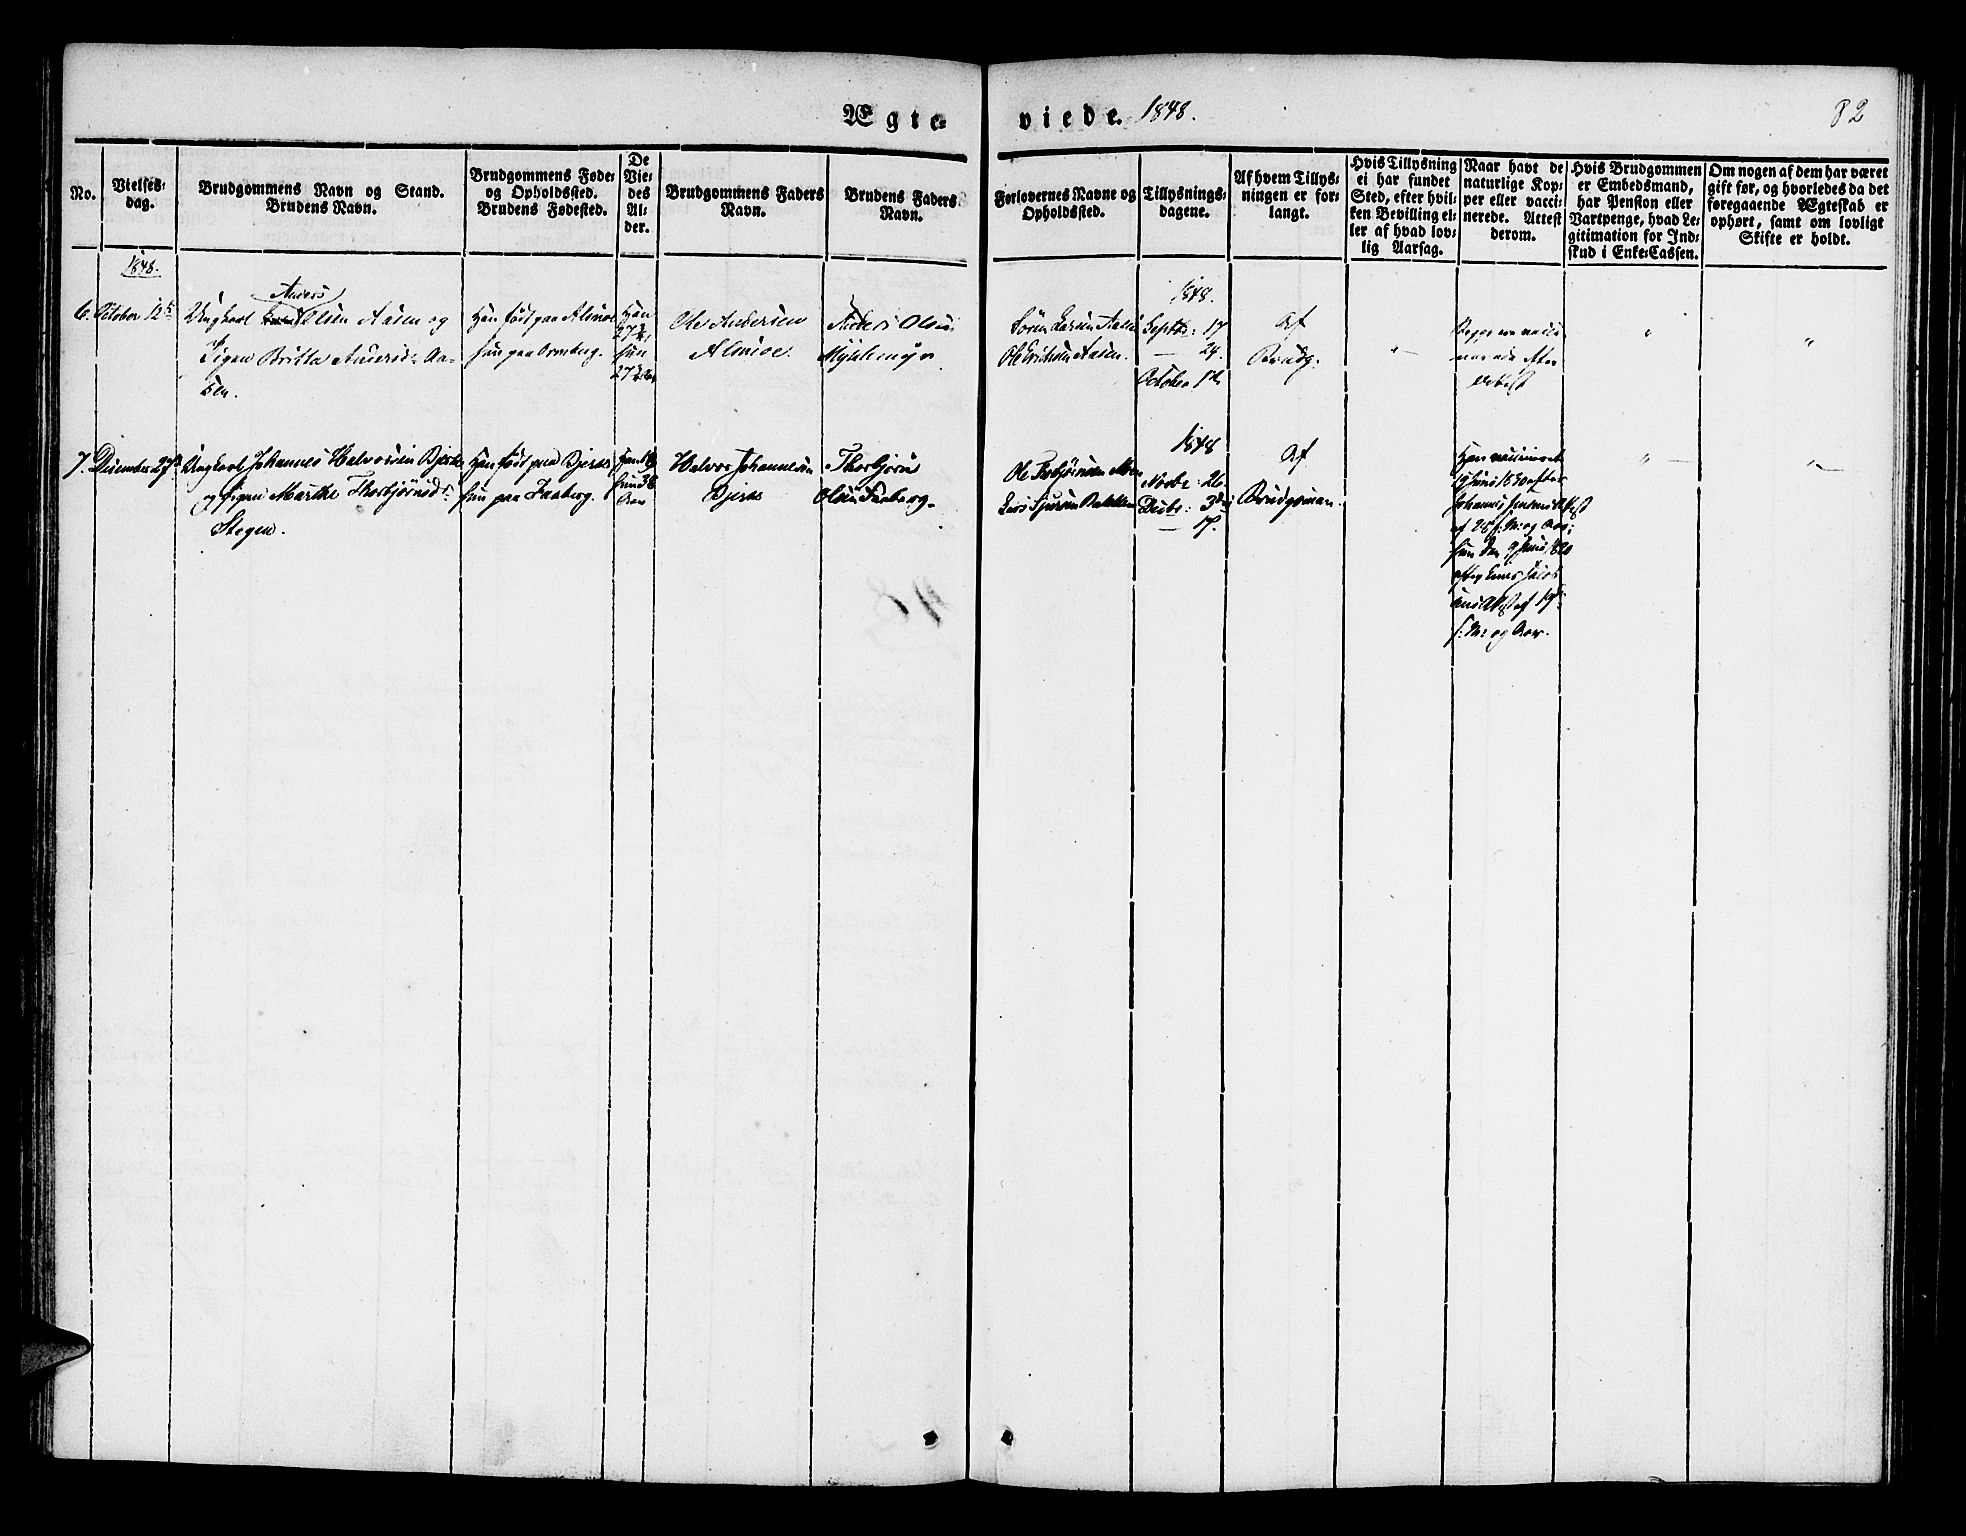 Ægte-
viede. 1848.
82
No.
Vielses-
dag.
Brudgommens Navn og Stand.
Brudens Navn.
Brudgommens Føde-
og Opholdssted.
Brudens Fødested.
De
Vie-
des
Al-
der.
Brudgommens Faders
Navn.
Brudens Faders
Navn.
Forlovernes Navne og
Opholdssted.
Tillysnings-
dagene.
Af hvem Tillys-
ningen er for-
langt.
Hvis Tillysning
ei har fundet
Sted, efter hvil-
ken Bevilling el-
ler af hvad lov-
lig Aarsag.
Naar havt de
naturlige Kop-
per eller vacci-
nerede. Attest
derom.
Hvis Brudgommen
er Embedsmand,
har Pension eller
Vartpenge, hvad Le-
gitimation for Ind-
skud i Enke-Cassen.
Om nogen af dem har været
gift før, og hvorledes da det
foregaaende Ægteskab er
ophørt, samt om lovligt
Skifte er holdt.
1848.
6. October 12te
Anders
Ungkarl Olsen Aasen og
Pigen Britta Andersd: Aa-
sen.
Han født paa Almoe
hun paa Ormberg.
Han
27
hun
27
Ole Andersen
Almoe.
Anders Olsen
Myklemyr
Sören Larsen Aasen
Ole Erichsen Aasen.
1848.
Septbr: 17
— 24.
October 1ste
Af
Brudg.
Begge ere vacci-
nerede efter
Attest
7. December 27de
Ungkarl Johannes Halvorsen Bjerk
og Pigen Marthe Thorbjörnsd:
Stegen.
Han født paa
hun paa Faaberg.
Halvor Johannesen
Thorbjörn
Olsen Faaberg.
Ole Torbjörnsen Moen
Lars Sjursen Bakken
1848
Novbr: 26.
Decbr: 3die
— 17.
Af
Brudgomen.
Han vaccineret
19 Juni 1830 efter
Johannes Attest
af 25 s: M: og Aar;
hun den 9 Juni 1820
efter Jacob
Attest af 19
s: M: og Aar.